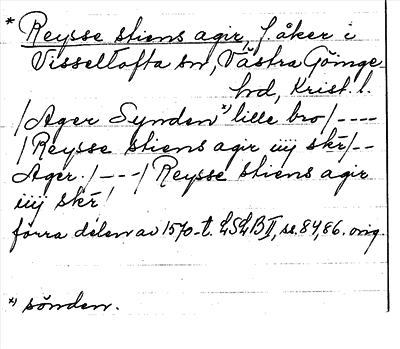 * Reysse stiens agir, f. åker i
Visseltofta sn, Västra Göinge
hd, Krist. l.
/Ager Synden *) lille bro/ ----
/Reysse stiens agir iiij skr/--
Ager./---/Reysse stiens agir
iiij skr/
förra delen av 1570-t. LSLB II, ss. 84, 86. orig.
*) sönden.